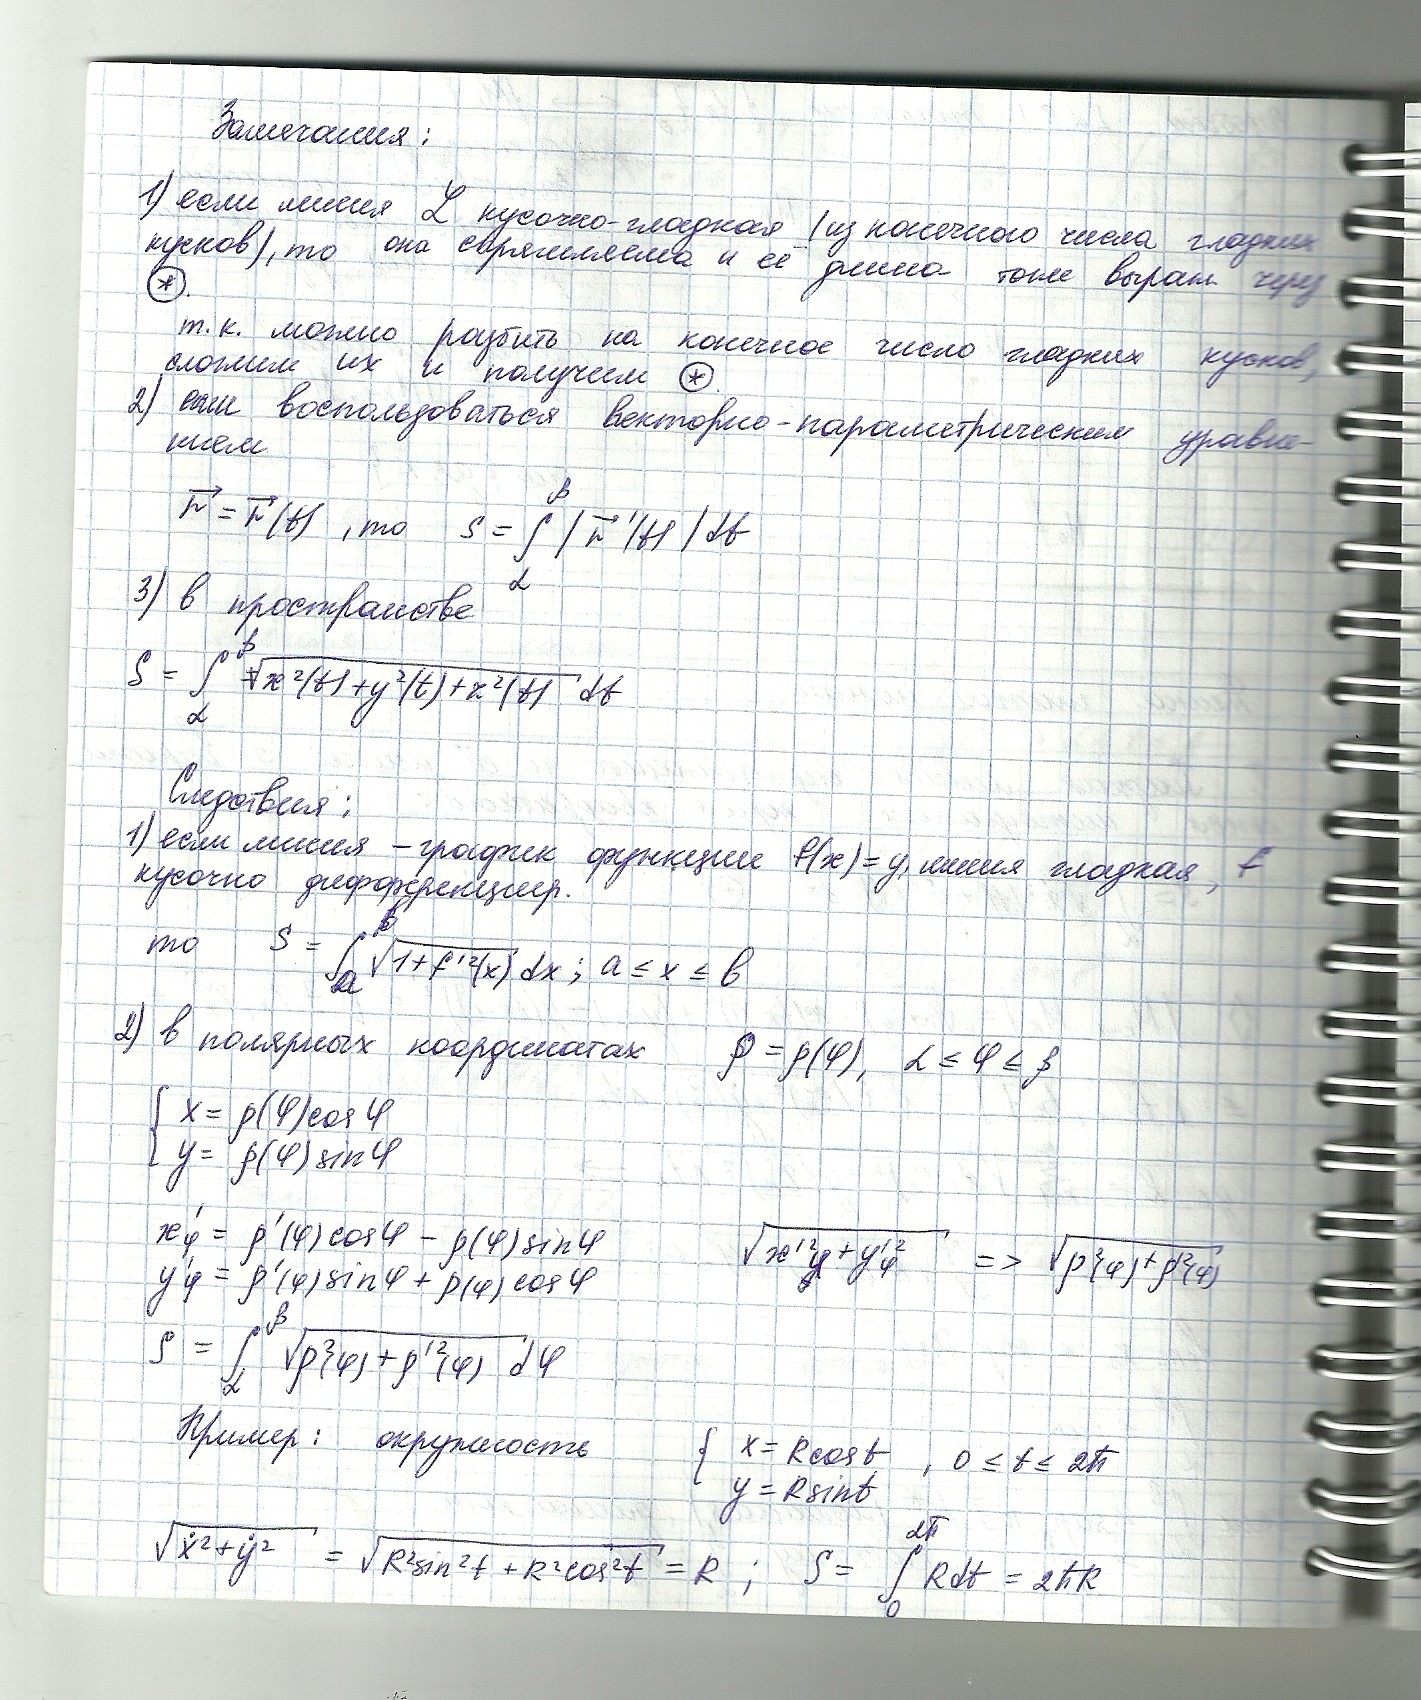 Замечания:
1) если линия L кусочно-гладкая (из конечного числа гладких
кусков), то она спрямляема и её длина тоже выраж через
(*).
т.к. можно разбить на конечное число гладких кусков,
сложим их и получим (*).
2) если воспользоваться векторно-параметрическим уравне-
нием
r⃗ = r⃗(t), то S = ∫_α^β |r⃗'(t)| dt
3) в пространстве
S = ∫_α^β √(x²(t) + y²(t) + z²(t)) dt
Следствия:
1) если линия – график функции f(x) = y, линия гладкая, f
кусочно дифференцир.
то S = ∫_a^b √(1 + f'²(x)) dx ; a ≤ x ≤ b
2) в полярных координатах ρ = ρ(φ), α ≤ φ ≤ β
{ x = ρ(φ) cos φ
y = ρ(φ) sin φ
x'φ = ρ'(φ) cos φ – ρ(φ) sin φ
y'φ = ρ'(φ) sin φ + ρ(φ) cos φ
√(x'²φ + y'²φ) => √(ρ²(φ) + ρ'²(φ))
S = ∫_α^β √(ρ²(φ) + ρ'²(φ)) dφ
Пример: окружность { x = R cos t , 0 ≤ t ≤ 2π
y = R sin t
√(ẋ² + ẏ²) = √(R² sin² t + R² cos² t) = R ; S = ∫_0^{2π} R dt = 2πR